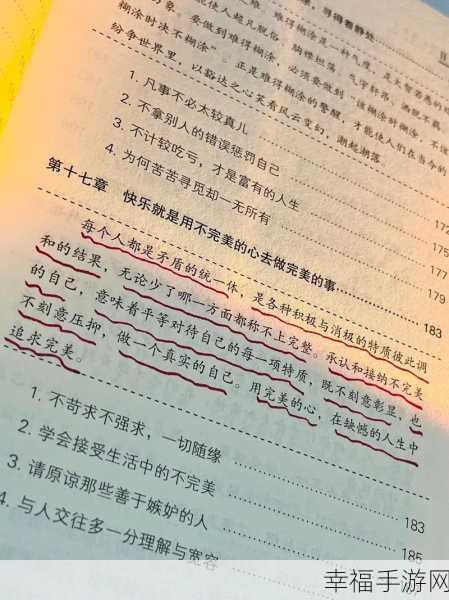 寻得着静处
难。难得糊涂是一种气度，是大智若愚的
能使人超凡脱俗，胸襟坦荡，气宇轩昂，洒脱不羁。
象。要做到难得糊涂，必须要做到，该糊涂时糊涂，不该
糊涂时决不糊涂”。正是难得糊涂的警醒，才能使人们在当今的
纷争世界里，以豁达之心笑看风云变幻，潮起潮落。
1. 凡事不必太较真儿 172
2. 不拿别人的错误惩罚自己 175
3. 不计较吃亏，才是富有的人生 177
4. 为何苦苦寻觅却一无所有 179
第十七章 快乐就是用不完美的心去做完美的事 183
每个人都是矛盾的统一体，是各种积极与消极的特质彼此调
和的结果，无论少了哪一方面都称不上完整。承认和接纳不完美
的自己，意味着平等对待自己的每一项特质，既不刻意彰显，也
不刻意压抑，做一个真实的自己。用完美的心，在缺憾的人生中
追求完美。
1. 不苛求不强求，一切随缘 183
2. 学会接受生活中的不完美 185
3. 请原谅那些善于嫉妒的人
4. 与人交往多一分理解与宽容
幸福手游网